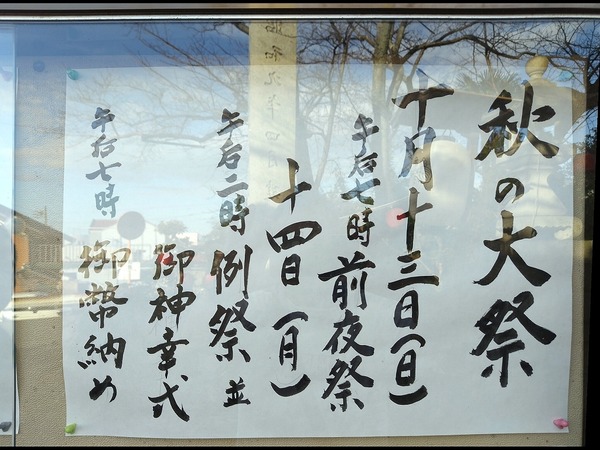 秋の大祭
十月十三日(日)
午后七時 前夜祭
十四日(月)
午后二時 例祭並
御神幸式
午后七時 御幣納め
昭和九年四月